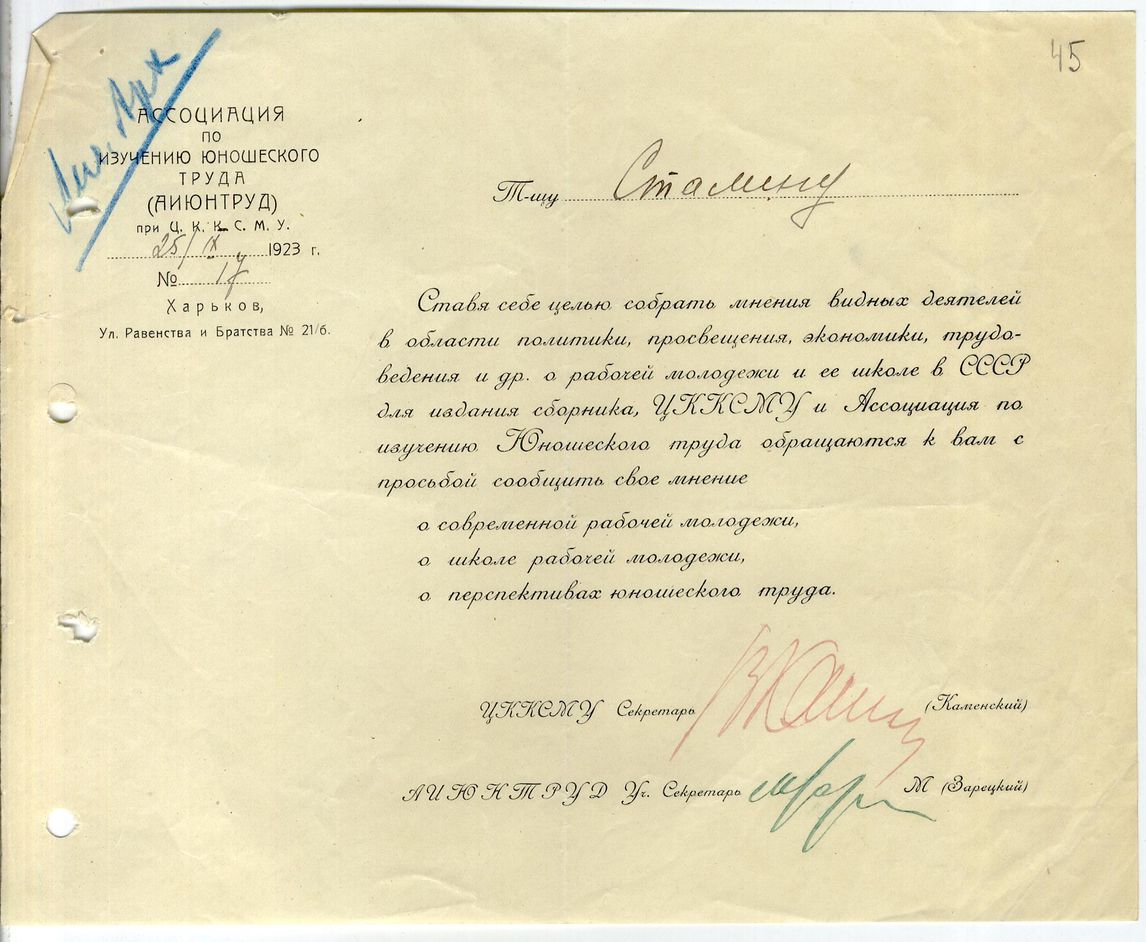 45
Лич. Арх
АССОЦИАЦИЯ
ПО
ИЗУЧЕНИЮ ЮНОШЕСКОГО
ТРУДА
(АИЮНТРУД)
при Ц. К. К. С. М. У.
25/IX 1923 г.
№ 17
Харьков,
Ул. Равенства и Братства № 21/6.
Т-щу Сталину
Ставя себе целью собрать мнения видных деятелей
в области политики, просвещения, экономики, трудо-
ведения и др. о рабочей молодежи и ее школе в СССР
для издания сборника, ЦККСМУ и Ассоциация по
изучению Юношеского труда обращаются к вам с
просьбой сообщить свое мнение
о современной рабочей молодежи,
о школе рабочей молодежи,
о перспективах юношеского труда.
ЦККСМУ Секретарь (Каменский)
АИЮНТРУД Уч. Секретарь М (Зарецкий)